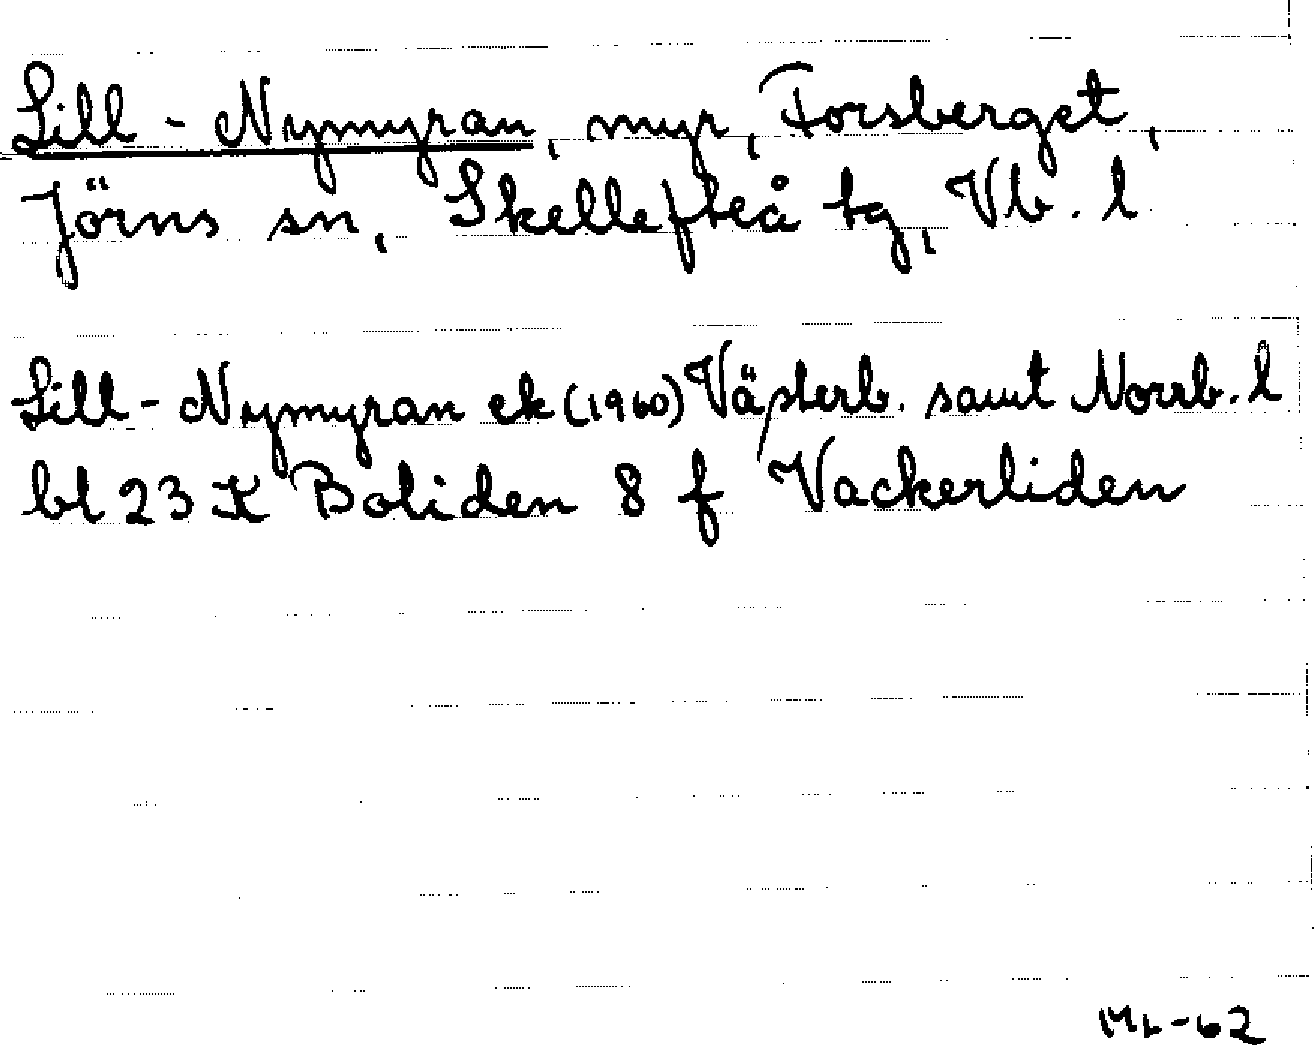 Lill-Nymyran, myr, Forsberget,
Jörns sn, Skellefteå tg, Vb. l
Lill-Nymyran ek (1960) Västerb. samt Norrb. l
bl 23 K Boliden 8 f Vackerliden